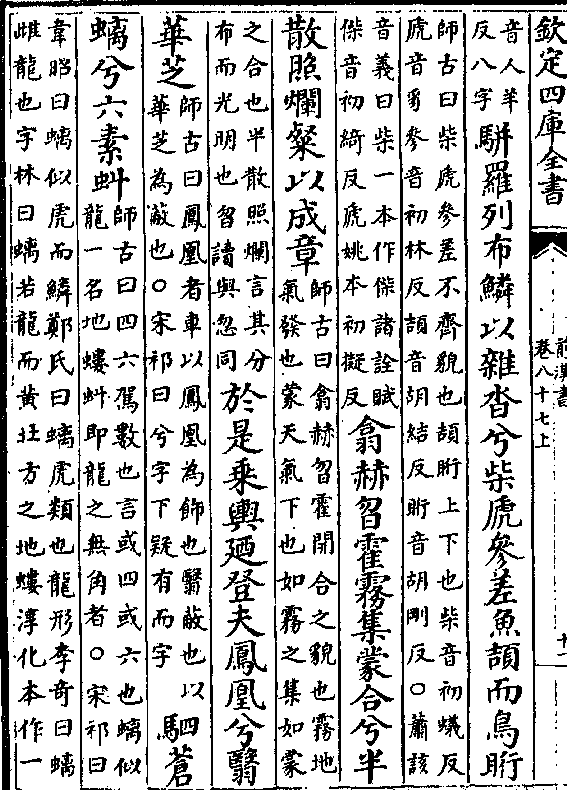 欽定四庫全書
前漢書
卷八十七上
十一
音人羊
反八字
駢羅列布鱗以雜沓兮柴虒參差魚頡而鳥䀪
師古曰柴虒參差不齊貌也頡䀪上下也柴音初蟻反
虒音豸參音初林反頡音胡結反䀪音胡剛反○蕭該
音義曰柴一本作傺諸詮賦
傺音初綺反虒姚本初擬反
翕赫曶霍霧集蒙合兮半
散照爛粲以成章
師古曰翕赫曶霍開合之貌也霧地
氣發也蒙天氣下也如霧之集如蒙
之合也半散照爛言其分
布而光明也曶讀與忽同
於是乘輿廼登夫鳳凰兮翳
華芝
師古曰鳳凰者車以鳳凰為飾也翳蔽也以
華芝為蔽也○宋祁曰兮字下疑有而字
駟蒼
螭兮六素虯
師古曰四六駕數也言或四或六也螭似
龍一名地螻虯即龍之無角者○宋祁曰
韋昭曰螭似虎而鱗鄭氏曰螭虎類也龍形李奇曰螭
雌龍也字林曰螭若龍而黃北方之地螻淳化本作一